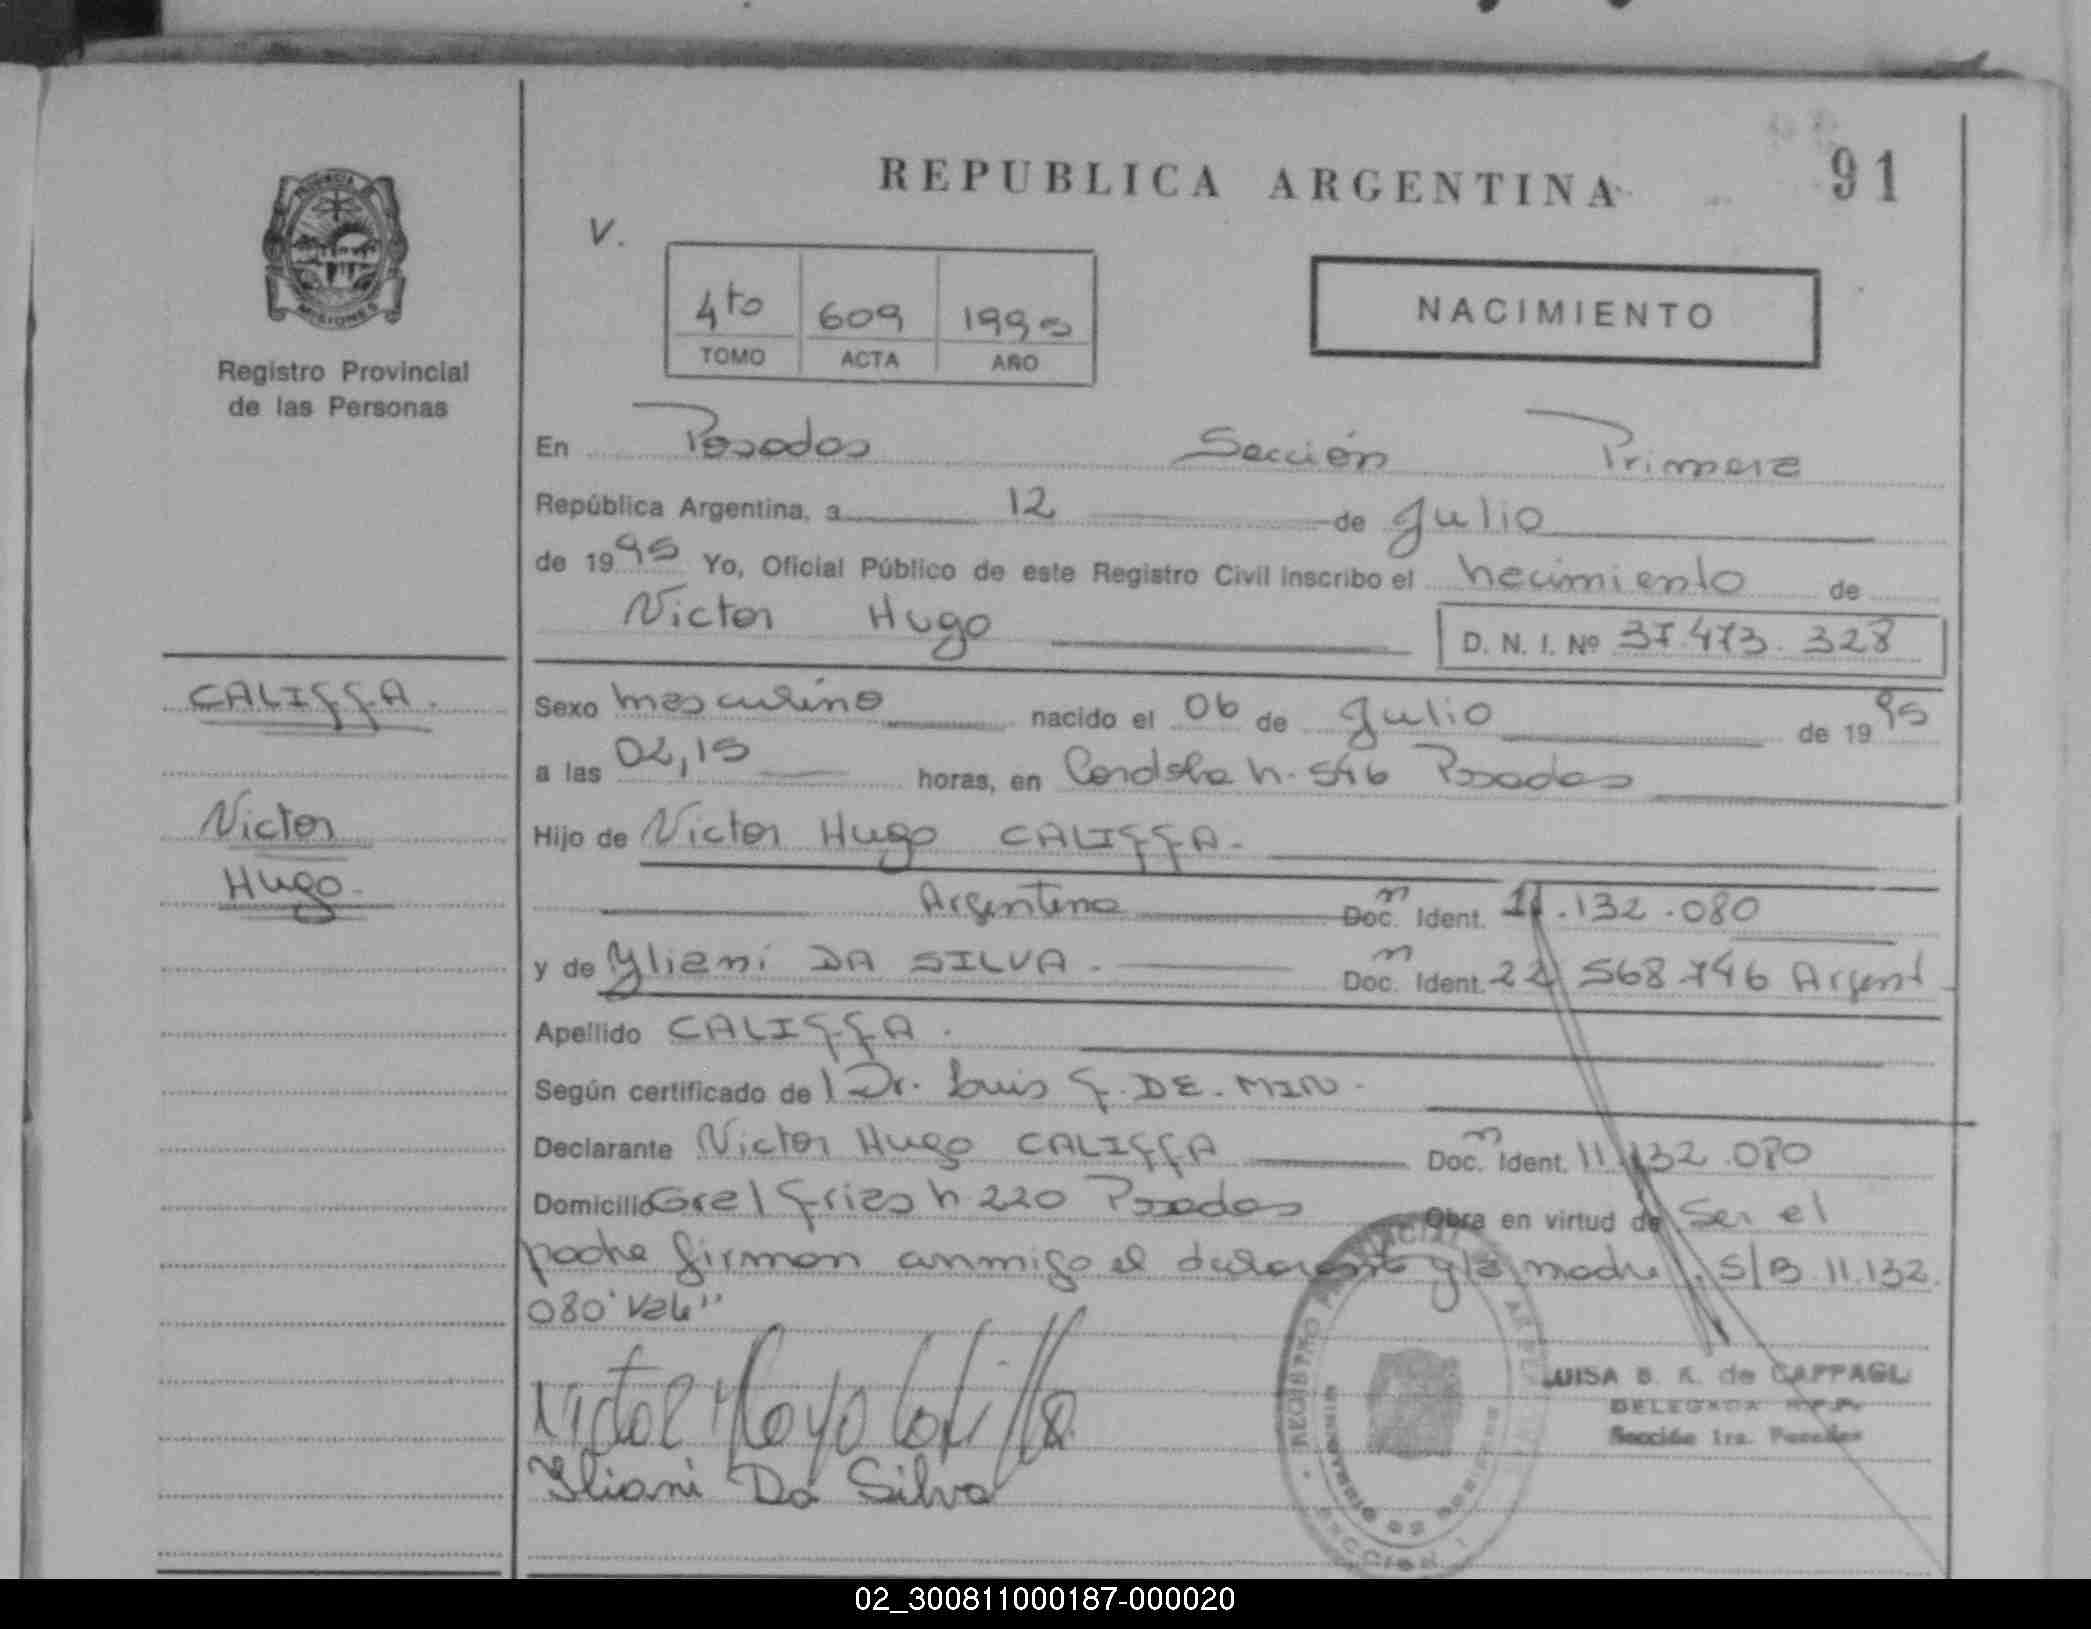 REPUBLICA ARGENTINA
91
V.
4to 609 1995
TOMO ACTA AÑO
NACIMIENTO
PROVINCIA
MISIONES
Registro Provincial
de las Personas
En Posadas Sección Primera
República Argentina, a 12 de Julio
de 1995 Yo, Oficial Público de este Registro Civil inscribo el nacimiento de
Victor Hugo D. N. I. Nº 37.473.328
CALIFFA.
Sexo masculino nacido el 06 de Julio de 1995
a las 02,15 horas, en Cordoba n. 546 Posadas
Victor
Hugo.
Hijo de Victor Hugo CALIFFA.
Argentina Doc. Ident. 11.132.080
y de Yliani DA SILVA. Doc. Ident. 22 568.746 Argent
Apellido CALIFFA.
Según certificado de l Dr. Luis F. DE. MIN.
Declarante Victor Hugo CALIFFA Doc. Ident. 11.132.080
Domicilio Gral Frias n 220 Posadas Obra en virtud de Ser el
padre firman conmigo el declarante y la madre. S/B 11.132.
080 "Vale"
Iliani Da Silva
LUISA B. K. de CAPPAGLI
DELEGADA R.P.P.
Sección 1ra. Posadas
REGISTRO PROVINCIAL DE LAS PERSONAS
SECCION 1
02_300811000187-000020